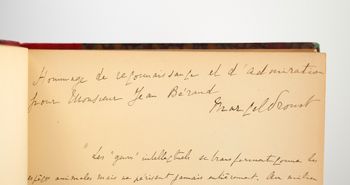 Hommage de reconnaissance et d'admiration
pour Monsieur Jean Béraud
Marcel Proust
Les "gens" intellectuels se transforment comme les
espèces animales mais ne périssent jamais entièrement. Au milieu